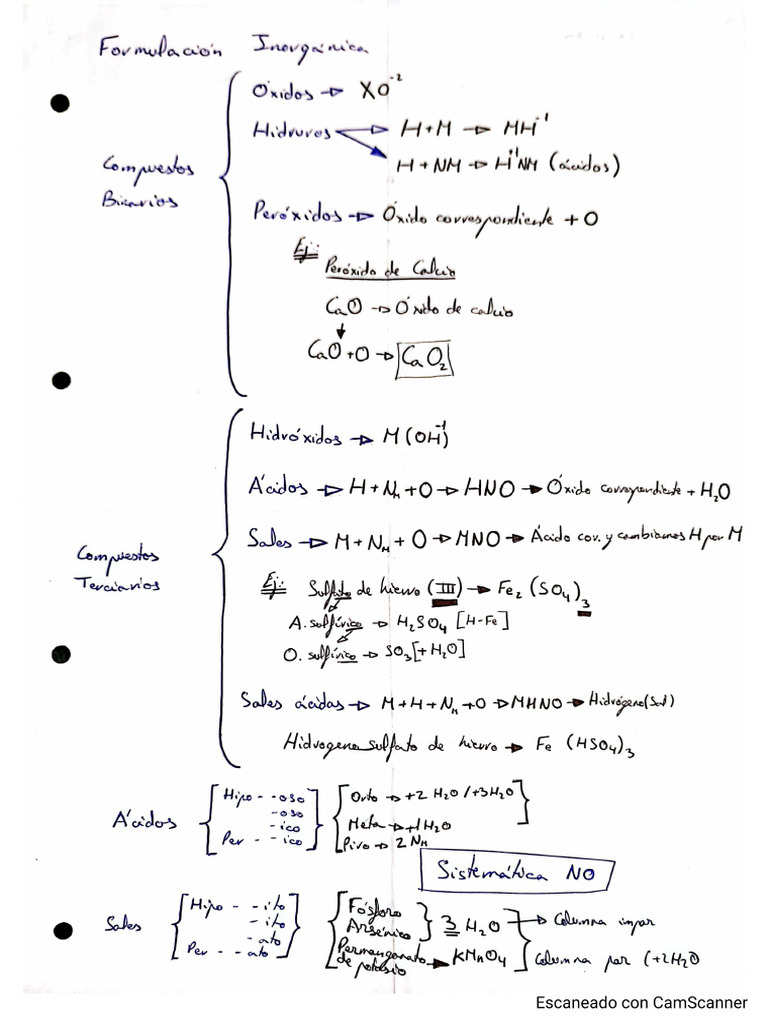 Formulación Inorgánica
Óxidos → XO⁻²
Hidruros → H+M → MH⁻¹
H+NM → H⁺¹NM (ácidos)
Compuestos
Binarios
Peróxidos → Óxido correspondiente + O
Ej:
Peróxido de Calcio
CaO → Óxido de calcio
CaO+O → CaO₂
Hidróxidos → M(OH⁻¹)
Ácidos → H+Nₘ+O → HNO → Óxido correspondiente + H₂O
Sales → M+Nₘ+O → MNO → Ácido cor. y cambiamos H por M
Compuestos
Terciarios
Ej: Sulfato de hierro (III) → Fe₂(SO₄)₃
A. sulfúrico → H₂SO₄ [H-Fe]
O. sulfúrico → SO₃[+H₂O]
Sales ácidas → M+H+Nₘ+O → MHNO → Hidrógeno(Sal)
Hidrogeno sulfato de hierro → Fe (HSO₄)₃
Ácidos
Hipo - - oso
- oso
- ico
Per - - ico
Orto → +2 H₂O / +3H₂O
Meta → +1H₂O
Piro → 2 Nₘ
Sistemática NO
Sales
Hipo - - ito
- ito
- ato
Per - - ato
Fósforo
Arsénico
3 H₂O → Columna impar
Permanganato
de potasio → KMnO₄
Columna par (+2H₂O
Escaneado con CamScanner